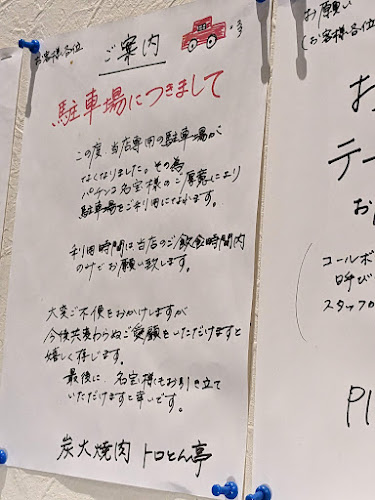 お客様各位
ご案内
駐車場につきまして
この度、当店専用の駐車場が
なくなりました。その為
パチンコ名宝様のご厚意により
駐車場をご利用になれます。
利用時間は当店のご飲食時間内
のみでお願い致します。
大変ご不便をおかけしますが
今後共変わらぬご愛顧をいただけますと
嬉しく存じます。
最後に、名宝様もお引き立て
いただけますと幸いです。
炭火焼肉 トロとん亭
お願い
(お客様各位
お
テー
お
コールボ
呼び
スタッフ
Pl